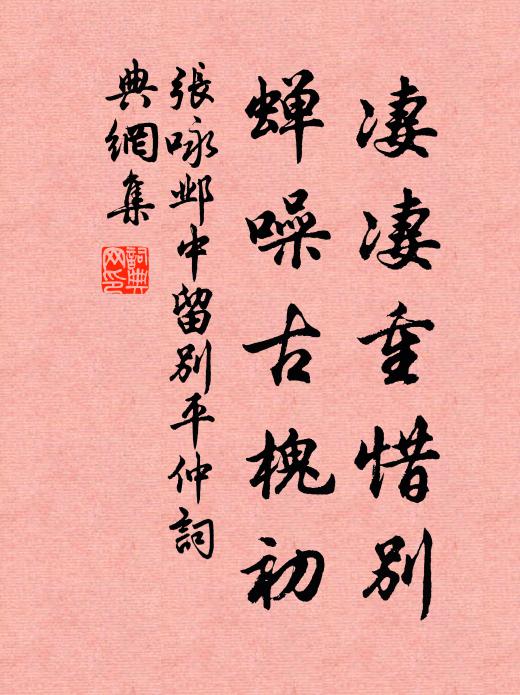 凄凄重惜别
蝉噪古槐初
張咏邺中留别平仲詞
典網集
詞典
网印